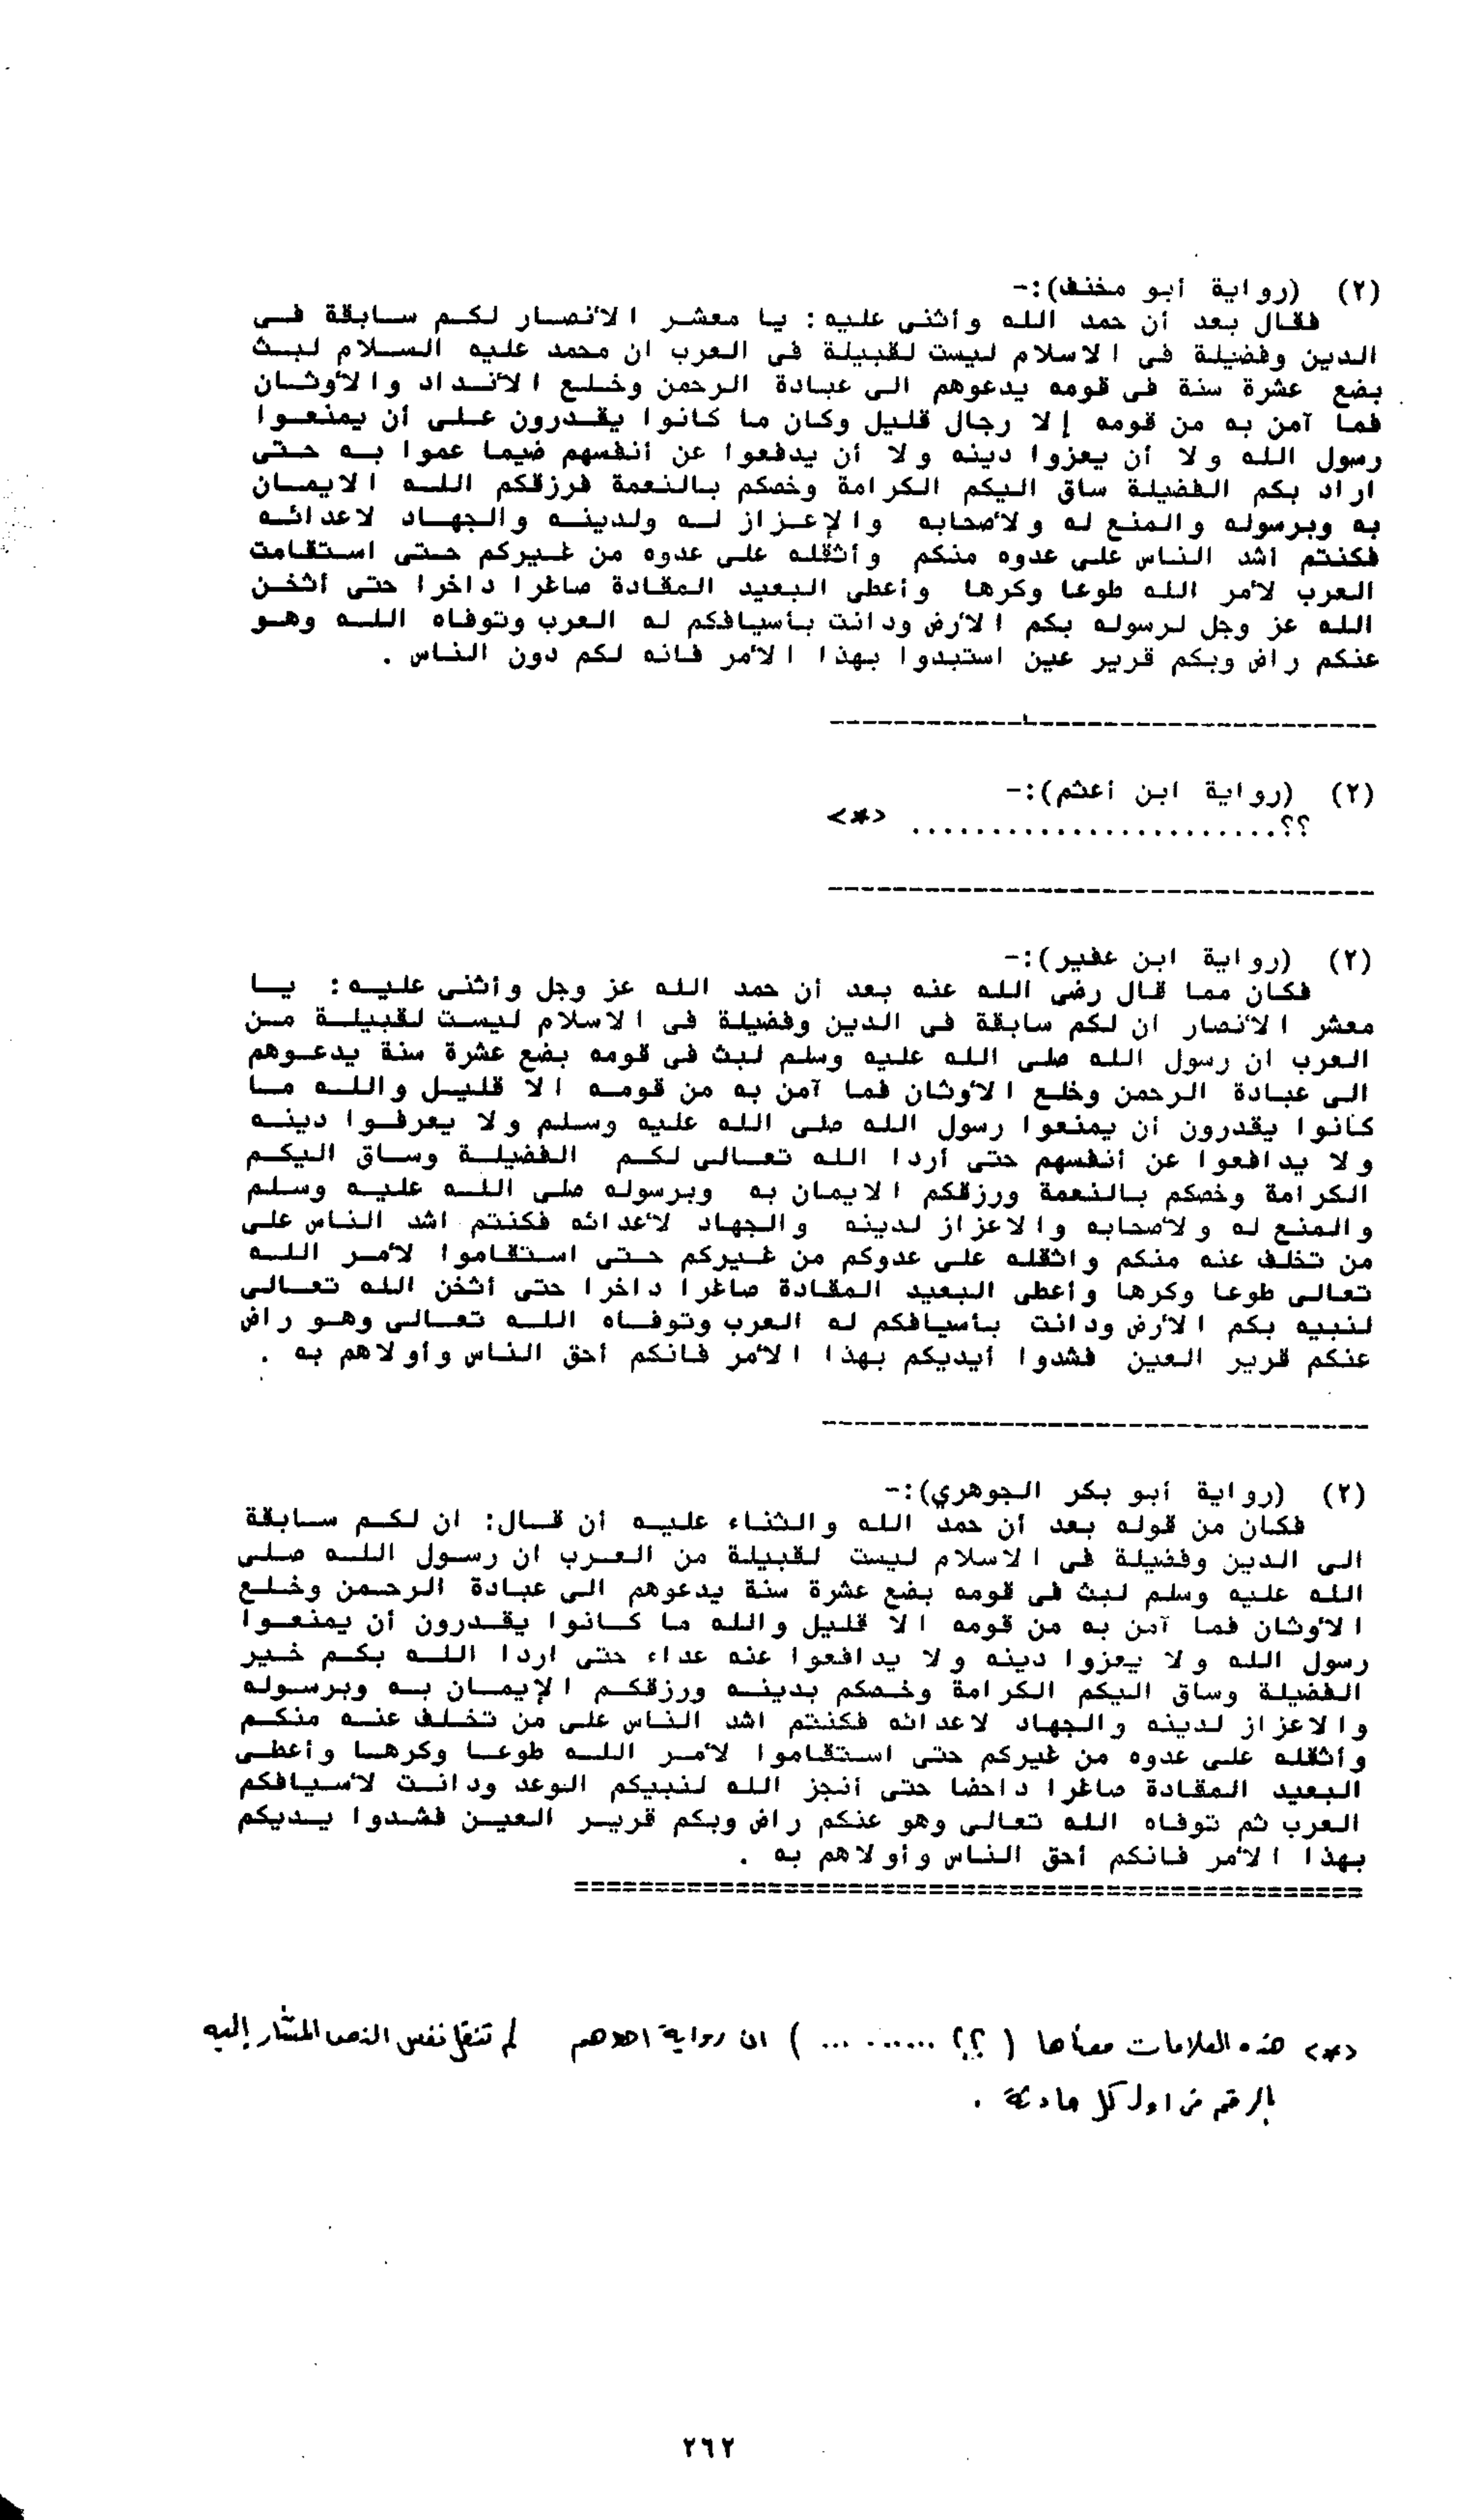 (٢) (رواية أبو مخنف):-
فقال بعد أن حمد الله وأثنى عليه : يا معشر الأنصار لكم سابقة فى
الدين وفضيلة فى الاسلام ليست لقبيلة فى العرب ان محمد عليه السلام لبث
بضع عشرة سنة فى قومه يدعوهم الى عبادة الرحمن وخلع الأنداد والأوثان
فما آمن به من قومه إلا رجال قليل وكان ما كانوا يقدرون على أن يمنعوا
رسول الله ولا أن يعزوا دينه ولا أن يدفعوا عن أنفسهم ضيما عموا به حتى
اراد بكم الفضيلة ساق اليكم الكرامة وخصكم بالنعمة فرزقكم الله الايمان
به وبرسوله والمنع له ولأصحابه والإعزاز له ولدينه والجهاد لاعدائه
فكنتم أشد الناس على عدوه منكم وأثقله على عدوه من غيركم حتى استقامت
العرب لأمر الله طوعا وكرها وأعطى البعيد المقادة صاغرا داخرا حتى أثخن
الله عز وجل لرسوله بكم الأرض ودانت بأسيافكم له العرب وتوفاه الله وهو
عنكم راض وبكم قرير عين استبدوا بهذا الأمر فانه لكم دون الناس .
-----------------------------------
(٢) (رواية ابن أعثم):-
؟؟........................ <*>
-----------------------------------
(٢) (رواية ابن عفير):-
فكان مما قال رضى الله عنه بعد أن حمد الله عز وجل وأثنى عليه : يا
معشر الأنصار ان لكم سابقة فى الدين وفضيلة فى الاسلام ليست لقبيلة من
العرب ان رسول الله صلى الله عليه وسلم لبث فى قومه بضع عشرة سنة يدعوهم
الى عبادة الرحمن وخلع الأوثان فما آمن به من قومه الا قليل والله ما
كانوا يقدرون أن يمنعوا رسول الله صلى الله عليه وسلم ولا يعرفوا دينه
ولا يدافعوا عن أنفسهم حتى أردا الله تعالى لكم الفضيلة وساق اليكم
الكرامة وخصكم بالنعمة ورزقكم الايمان به وبرسوله صلى الله عليه وسلم
والمنع له ولأصحابه والاعزاز لدينه والجهاد لأعدائه فكنتم اشد الناس على
من تخلف عنه منكم واثقله على عدوكم من غيركم حتى استقاموا لأمر الله
تعالى طوعا وكرها وأعطى البعيد المقادة صاغرا داخرا حتى أثخن الله تعالى
لنبيه بكم الأرض ودانت بأسيافكم له العرب وتوفاه الله تعالى وهو راض
عنكم قرير العين فشدوا أيديكم بهذا الأمر فانكم أحق الناس وأولاهم به .
-----------------------------------
(٢) (رواية أبو بكر الجوهري):-
فكان من قوله بعد أن حمد الله والثناء عليه أن قال: ان لكم سابقة
الى الدين وفضيلة فى الاسلام ليست لقبيلة من العرب ان رسول الله صلى
الله عليه وسلم لبث فى قومه بضع عشرة سنة يدعوهم الى عبادة الرحمن وخلع
الأوثان فما آمن به من قومه الا قليل والله ما كانوا يقدرون أن يمنعوا
رسول الله ولا يعزوا دينه ولا يدافعوا عنه عداء حتى اردا الله بكم خير
الفضيلة وساق اليكم الكرامة وخصكم بدينه ورزقكم الإيمان به وبرسوله
والاعزاز لدينه والجهاد لاعدائه فكنتم اشد الناس على من تخلف عنه منكم
وأثقله على عدوه من غيركم حتى استقاموا لأمر الله طوعا وكرها وأعطى
البعيد المقادة صاغرا داحضا حتى أنجز الله لنبيكم الوعد ودانت لأسيافكم
العرب ثم توفاه الله تعالى وهو عنكم راض وبكم قرير العين فشدوا يديكم
بهذا الأمر فانكم أحق الناس وأولاهم به .
==================================================
<*> هذه العلامات معناها ( ؟؟ ......... ) ان رواية احدهم لم تنقل نفس النص المشار إليه
بالرقم فى اول كل حادثة .
٢٦٢